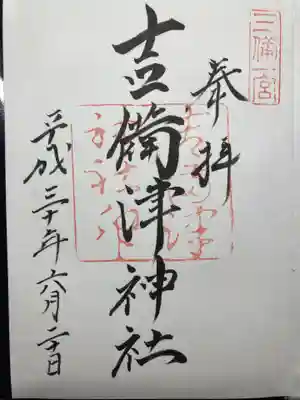 三備一宮
奉拝
吉備津神社
平成三十年六月二十日